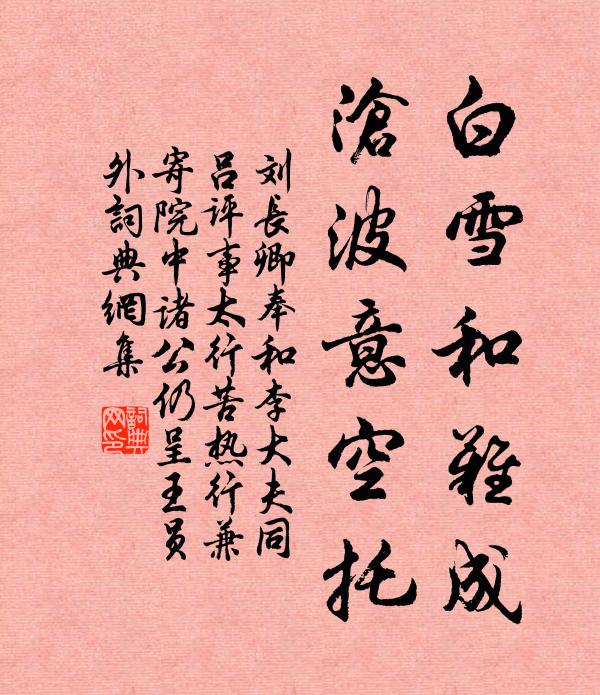 白雪和难成
滄波意空托
刘長卿奉和李大夫同
吕评事太行苦热行兼
寄院中諸公仍呈王員
外詞典網集
詞典
网印